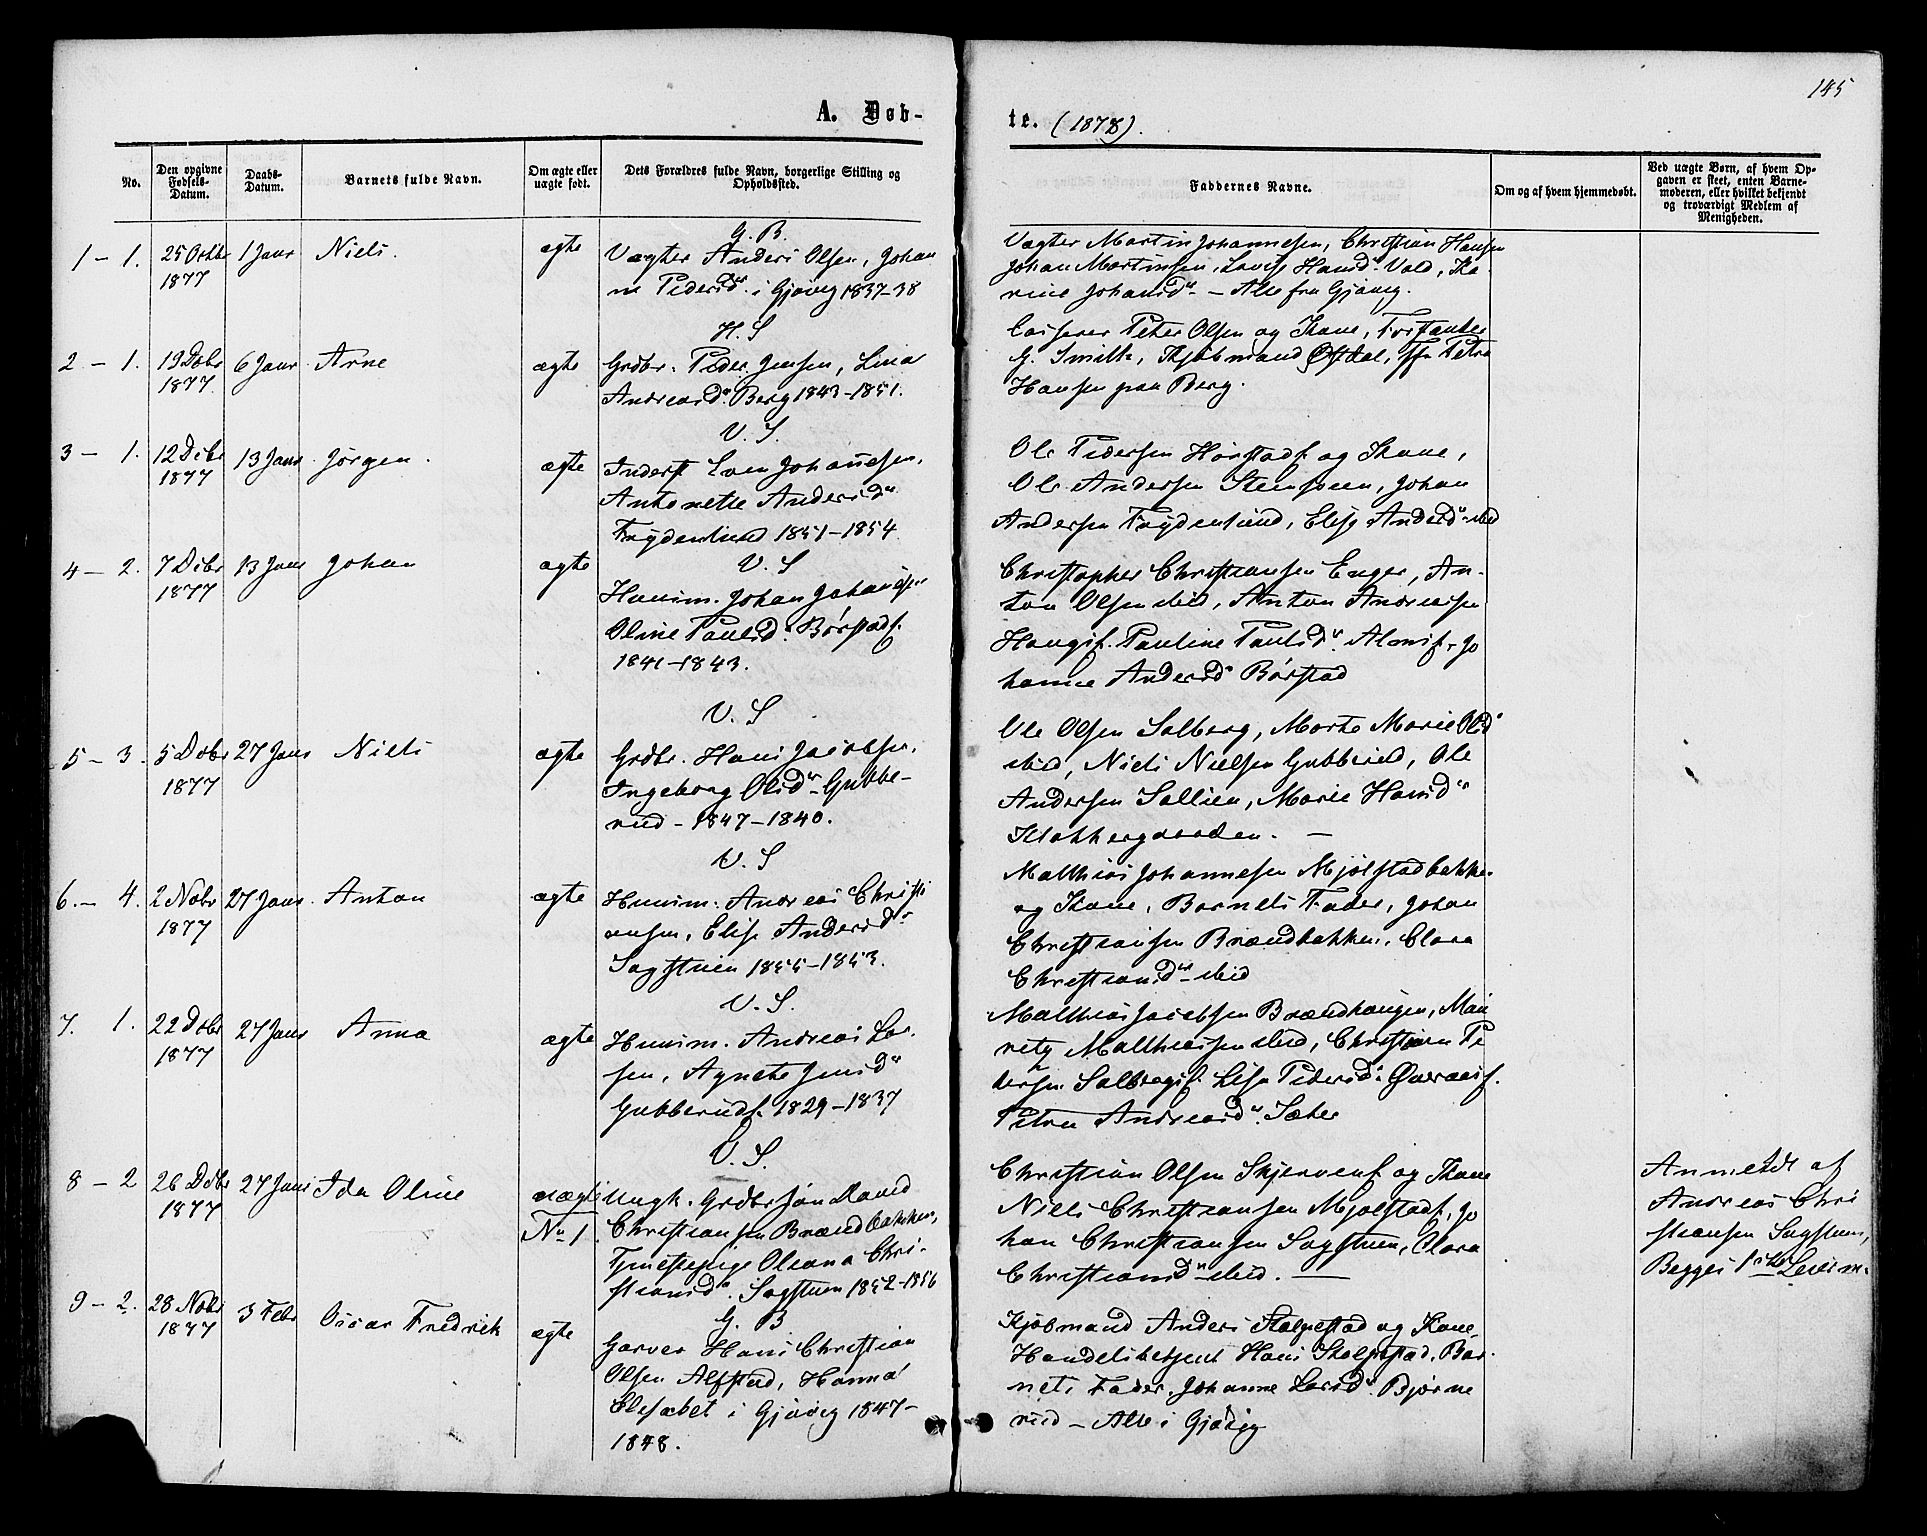 145
A. Døb-
te. (1878).
No.
Den opgivne Fødsels-Datum.
Daabs-Datum.
Barnets fulde Navn.
Om ægte eller uægte født.
Dets Forældres fulde Navn, borgerlige Stilling og Opholdssted.
Faddernes Navne.
Om og af hvem hjemmedøbt.
Ved uægte Børn, af hvem Op-
gaven er skeet, enten Barne-
moderen, eller hvilket bekjendt
og troværdigt Medlem af
Menigheden.
1 - 1. 25 Octbr 1877 1 Janr Niels. ægte
G. B.
Vægter Anders Olsen, Johan
ne Pedersdr. i Gjøvig 1837-38
Vægter Martin Johannesen, Christian Hansen
Johan Martinsen, Lovise Hansdr. Vold, Ka-
rine Johansdr - Alle fra Gjøvig.
2 - 1. 19 Decbr 1877. 6 Janr Arne ægte
H. S
Grdbr. Peder Jensen, Lina
Andreasdr. Berg 1843-1851.
Casserer Peter Olsen og Kone, Forstander
G. Smith, Kjøbmand Østdal, Petra
Hansen paa Berg.
3 - 1. 12 Debr 1877 13 Janr Jørgen. ægte
V. S.
Inderst Even Johannesen,
Antonette Andersdr
Frydenlund 1851-1854
Ole Pedersen Hørstadf og Kone,
Ole Andersen Steensveen, Johan
Andersen Frydenlund, Elise Andersdr ibid
4 - 2. 7 Debr 1877 13 Janr Johan ægte
V. S
Huusm. Johan Johannesen
Oline Paulsd. Børstadf.
1841-1843.
Christopher Christiansen Enger, An-
ton Olsen ibid, Anton Andreassen
Haugsf. Pauline Paulsdr. Jo
hanne Andersdr Børstad
5 - 3. 5 Debr 1877 27 Janr Niels ægte
V. S
Grdbr. Hans Jacobsen,
Ingeborg Olsdr Gubbe-
rud - 1847-1840.
Ole Olsen Solberg, Marte Marie Olsdr
ibid, Niels Nielsen Gubberud, Ole
Andersen Sollien, Marie Hansdr
Klokkergaarden. -
6. - 4. 2 Nobr 1877 27 Janr. Anton ægte
V. S
Huusm. Andreas Christi
ansen, Elise Andersdr
Sagstuen 1855-1853.
Mathias Johannesen Mjølstadbakke
og Kone, Barnets Fader, Johan
Christiansen Brændbakken, Clara
Christiansdr ibid
7. 1. 22 Debr 1877 27 Janr Anna ægte
V. S.
Huusm. Andreas Lar-
sen, Agnete Jensdr
Gubberudf. 1829-1837
Mathias Jacobsen Brændhaugen, Mari
Mathiassen ibid, Christian Pe
dersen Solbergsf. Lise Pedersdr.
Petra Andreasdr. Sæter
8 - 2 26 Debr 1877 27 Janr Ida Oline uægte No 1.
V. S.
Ungk. Grdbrsøn David
Christiansen Brændbakken,
Tjenestepige Oleana Chri-
stiansdr. Sagstuen 1852-1856
Christian Olsen Skjervenf og Kone
Niels Christiansen Mjølstadf, Jo
han Christiansen Sagstuen, Clara
Christiansdr ibid. -
Anmeldt af
Andreas Chri
stiansen Sagstuen,
Begges 1ste Leierm.
9 - 2. 28 Nobr 1877 3 Febr Oscar Fredrik ægte
G. B
Garver Hans Christian
Olsen Alfstad, Hanna
Elisabet i Gjøvig 1847-
1848.
Kjøbmand Anders Skolpestad og Kone,
Handelsbetjent Hans Skolpestad, Bar-
nets Fader, Johanne Larsdr Bjørne
rud - Alle i Gjøvig